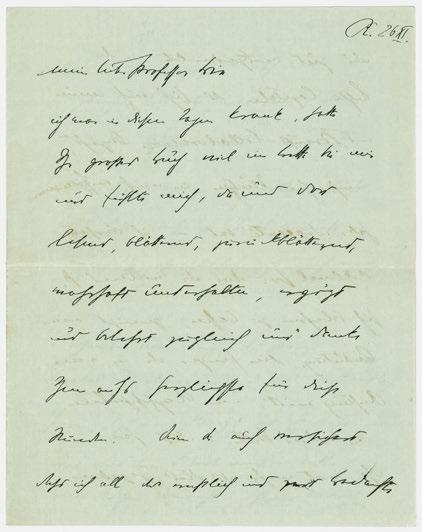 R. 26 XI.
mein lieber Professor
ich war in diesen Tagen krank, hatte
Ihr grosses Buch viel im Bett bei mir
und fühlte mich, da und dort
lesend, blätternd, zurückblätternd,
wahrhaft unterhalten, ergötzt
und belehrt zugleich und danke
Ihnen aufs herzlichste für diese
Stunden. auch versichert
dass ich all das und